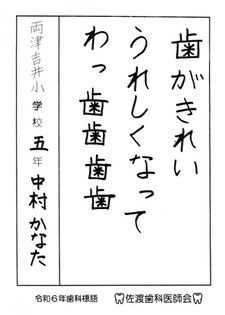 歯がきれい
うれしくなって
わっ歯歯歯歯
両津吉井小学校五年中村かなた
令和6年歯科標語
佐渡歯科医師会